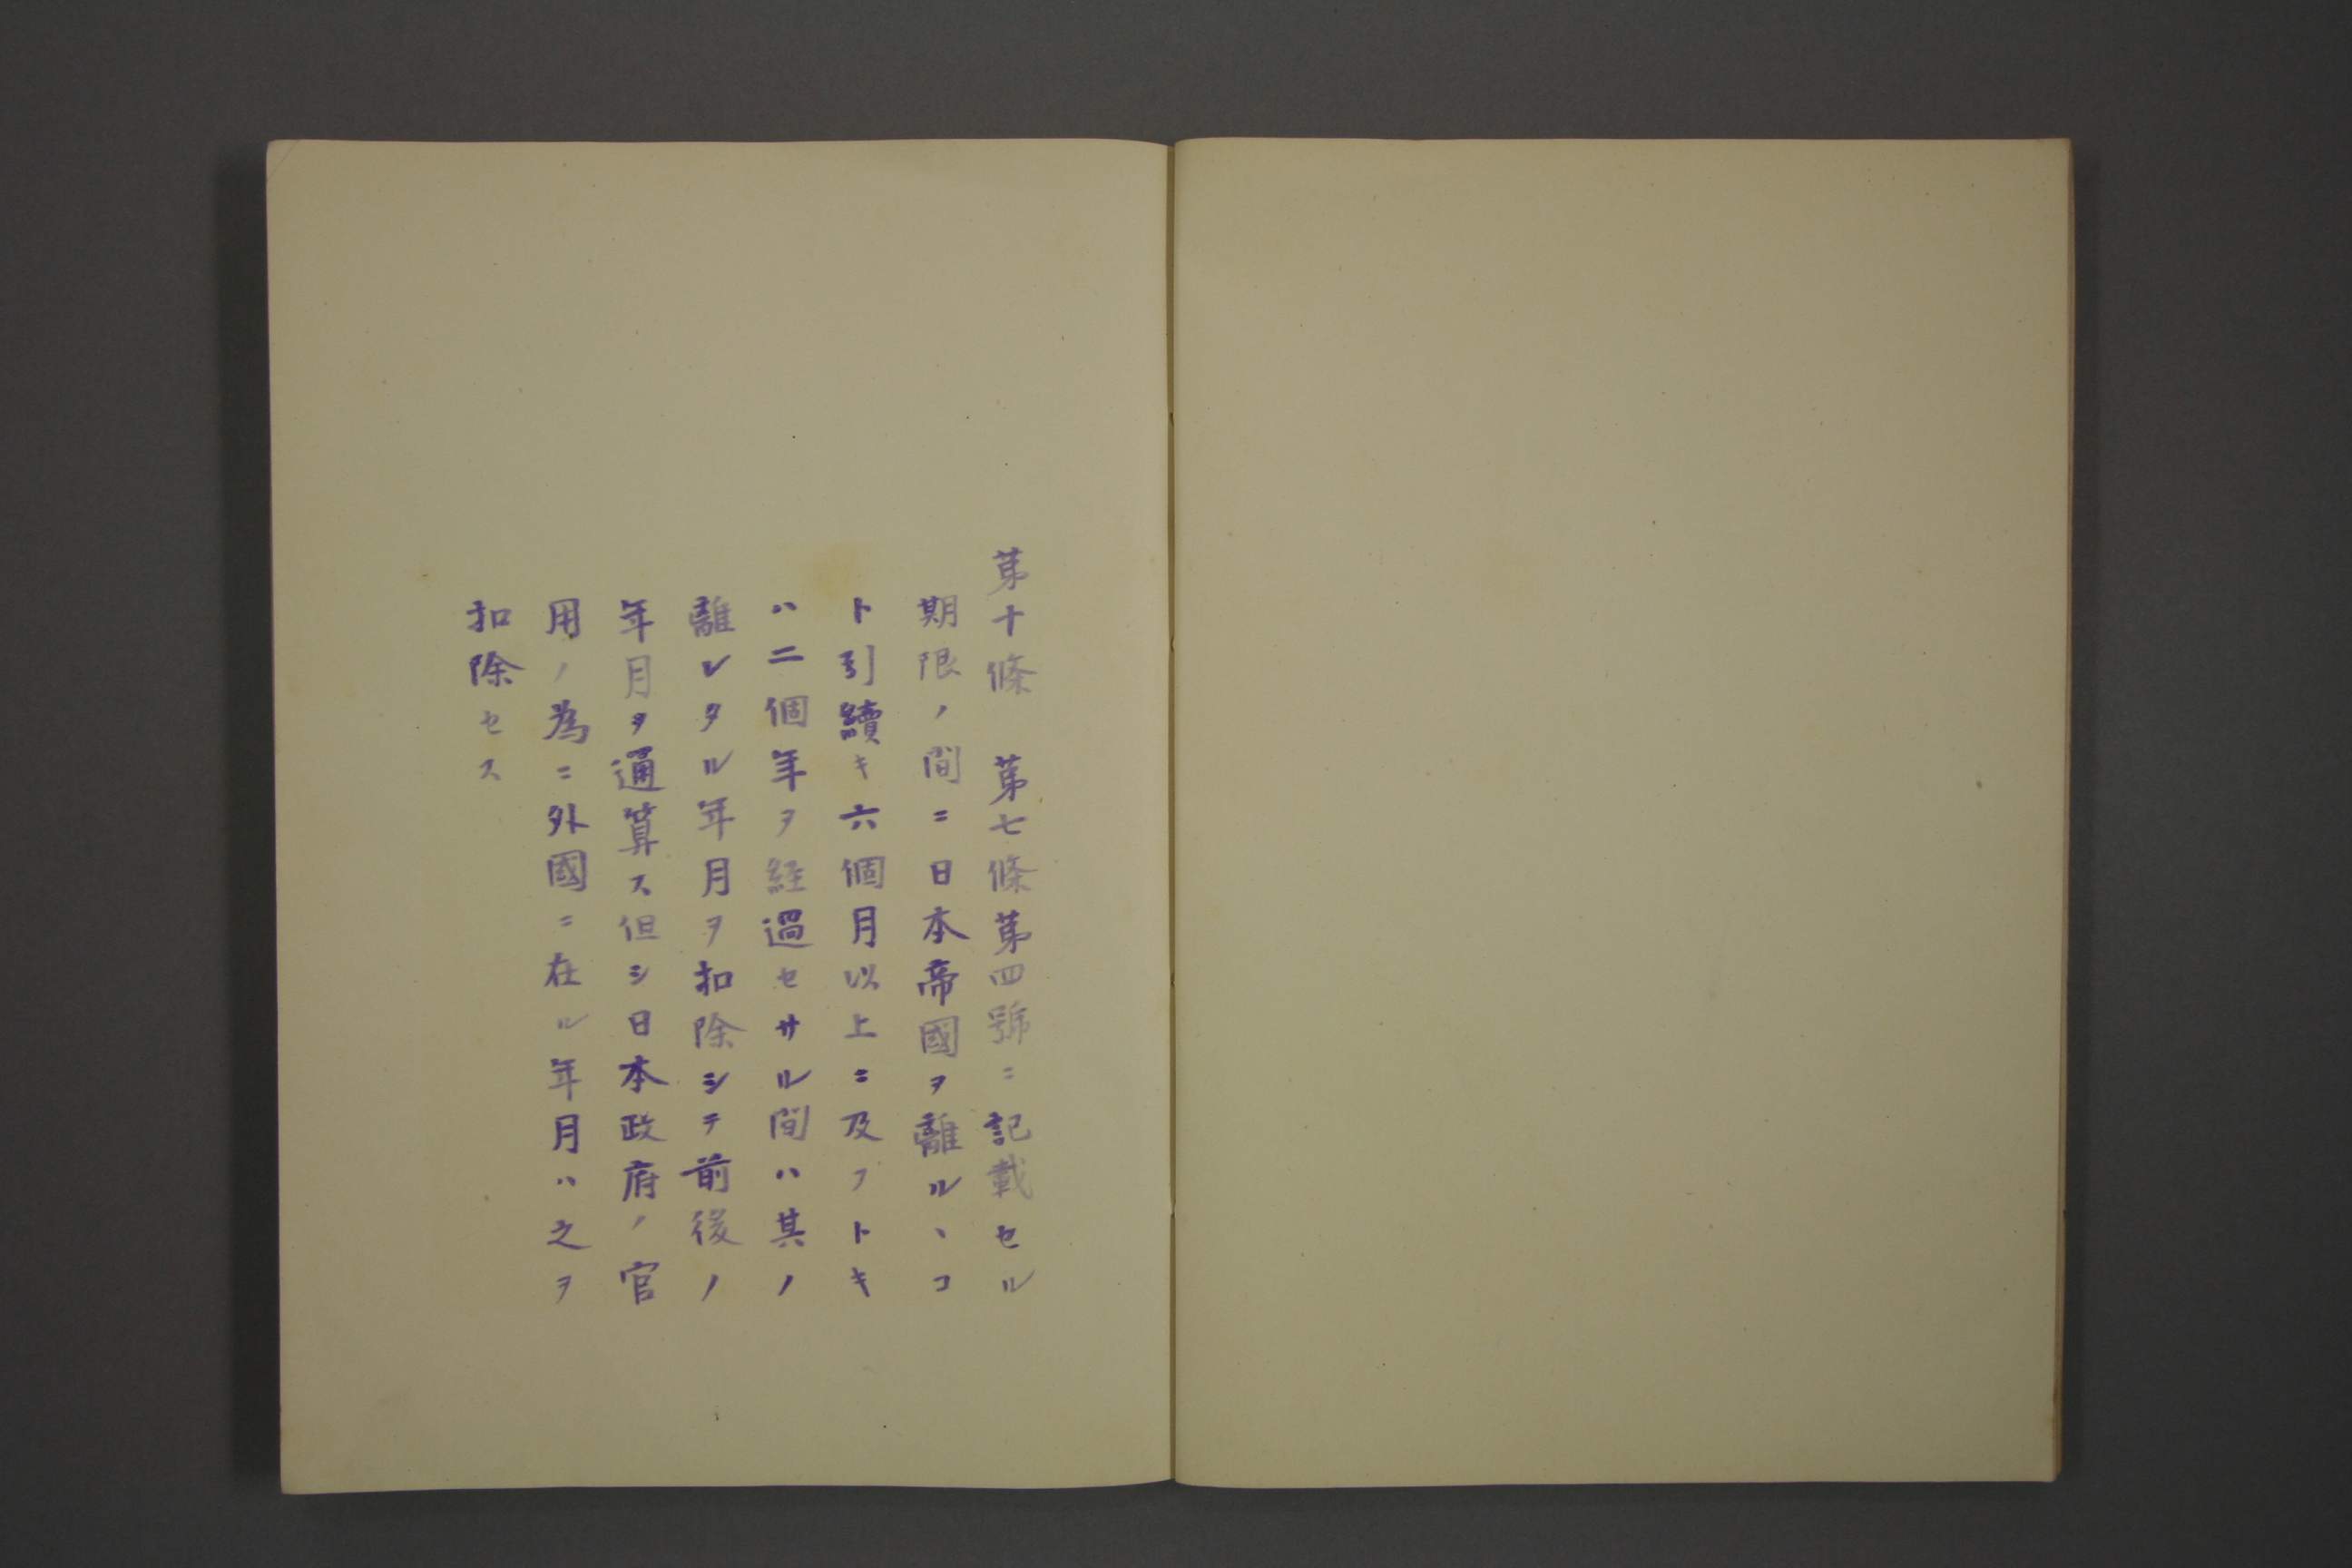 第十條　第七條第四號ニ記載セル
期限ノ間ニ日本帝國ヲ離ルヽコ
ト引續キ六個月以上ニ及フトキ
ハ二個年ヲ経過セサル間ハ其ノ
離レタル年月ヲ扣除シテ前後ノ
年月ヲ通算ス但シ日本政府ノ官
用ノ為ニ外國ニ在ル年月ハ之ヲ
扣除セス